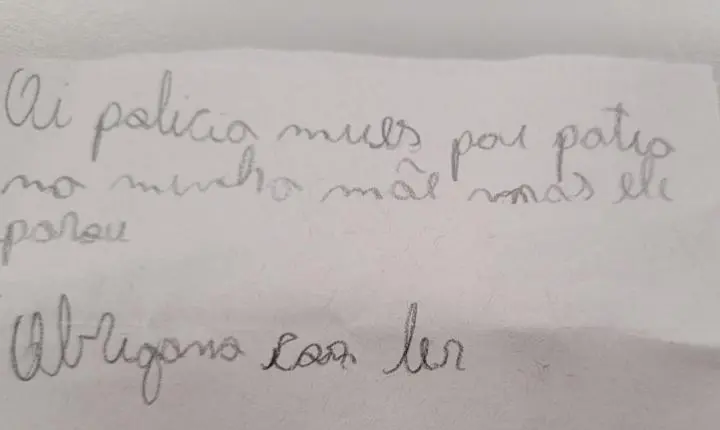 Oi policia mues pai patia
na minha mãe mas ele
parou
Obrigano por ler